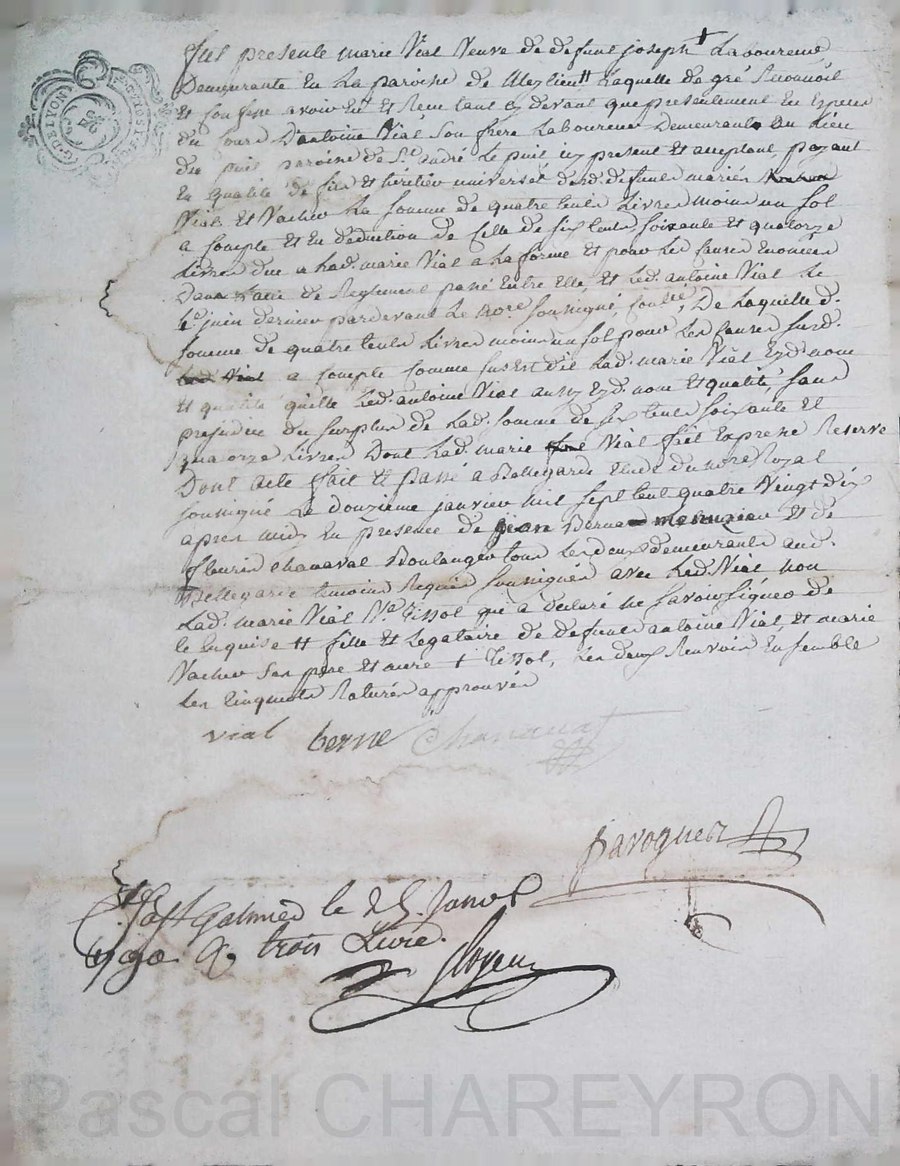 fut presente marie Vial Veuve de defunt joseph + Laboureur
Demeurante En La paroisse de Mezlieu tt Laquelle de gré Reconnoit
Et Confesse avoir Eu Et Receu tant Cy devant que presentement En Especes
du Cours D'antoine Vial Son frere Laboureur Demeurant au Lieu
du puit paroisse de St. andré Le puit icy present Et acceptant, payant
En qualité de fils Et héritier universel desd. defunts mariés
Vial Et Vacher La Somme de quatre Cents Livres moins un Sol
a Compte Et En déduction de Celle de Six Cents Soixante Et quatorze
Livres due a Lad. marie Vial a La forme Et pour Les Causes Enoncées
Dans L'acte de Reglement passé Entre Elle, Et Led. antoine Vial Le
juin dernier pardevant Le nore Soussigné, Controllé, De Laquelle d.
Somme de quatre Cents Livres moins un Sol pour Les Causes Susd.
Led. Vial a Compte Comme Sus Est dit Lad. marie Vial Eyd. nom
Et qualité quitte Led. antoine Vial aussy Eyd. nom Et qualité, Sans
prejudice du Surplus de Lad. Somme de Six Cents Soixante Et
quatorze Livres Dont Lad. marie Vial fait Expresse Reserve
Dont Acte fait Et passé a Bellegarde Etude du nore Royal
Soussigné Le douzieme janvier mil Sept Cent quatre Vingt dix
apres midy En presence de jean Berne menuisier Et de
fleurin Chanavat Boulanger tous Les deux demeurants aud.
Bellegarde temoins Requis Soussignés avec Led. Vial non
Lad. marie Vial Ve. Tissot qui a declaré ne Savoir Signer de
Ce Enquise tt fille Et Legataire de defunts antoine Vial, Et marie
Vacher Ses pere Et mere + Tissot, Les deux Renvois Ensemble
Les Cinq mots Raturés approuvés
vial berne Chanavat
paroguez
St. Galmier le 25. Janvr
1790 R trois Livre.
G. DE LYON
Pascal CHAREYRON